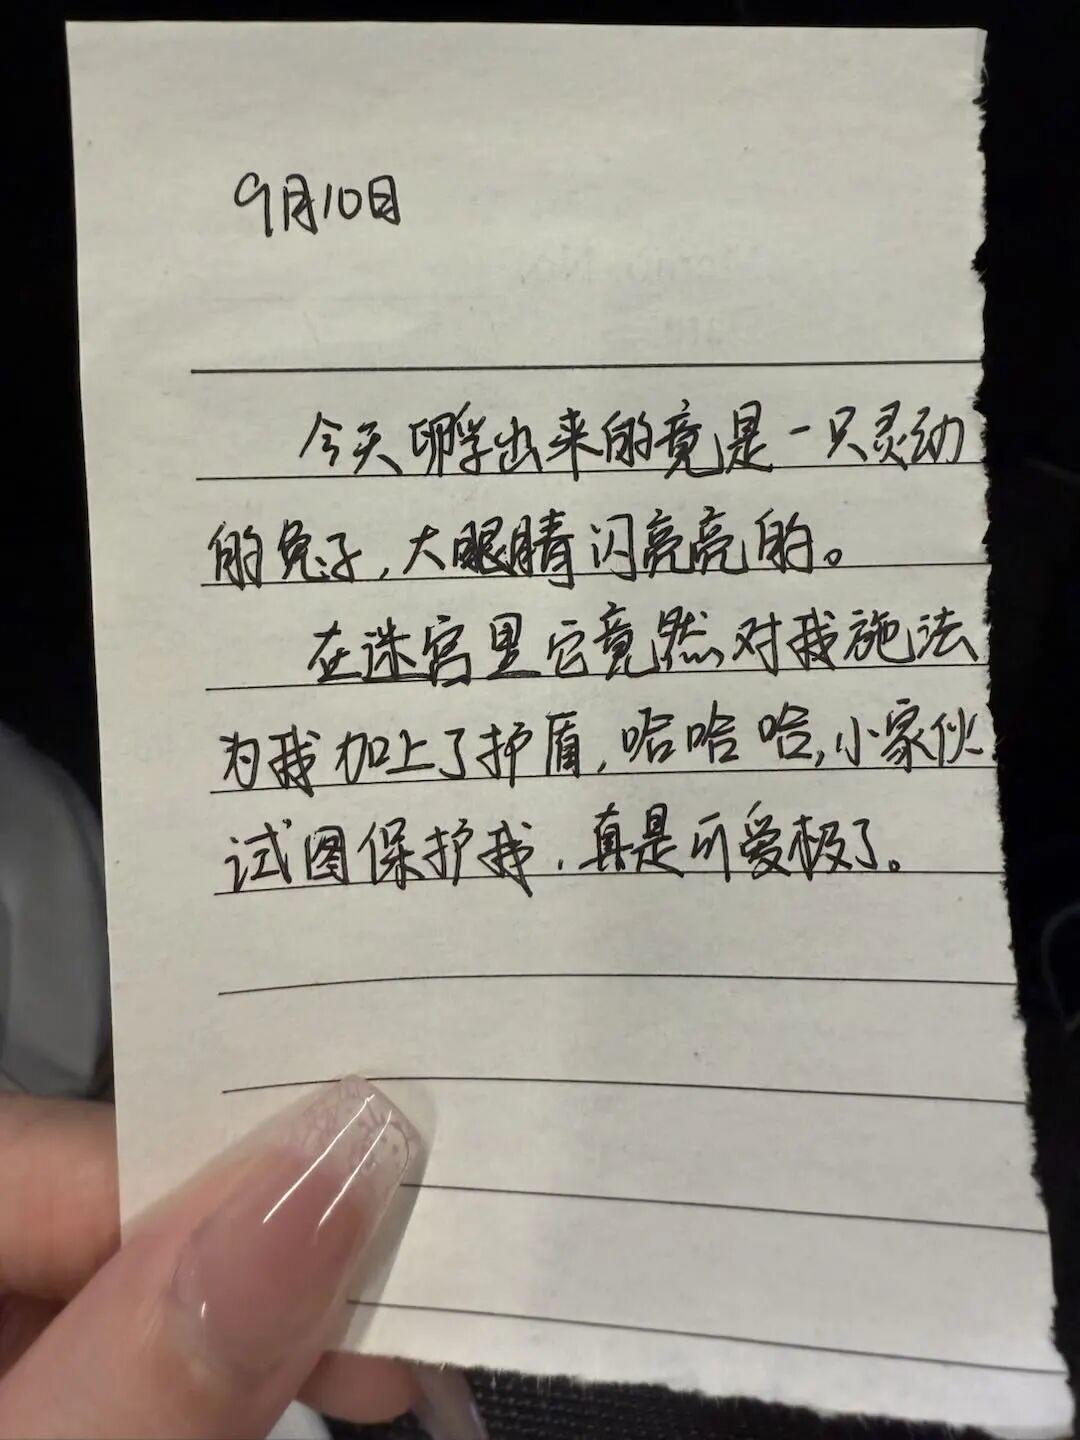 9月10日
今天孵出来的竟是一只灵动
的兔子,大眼睛闪亮亮的。
在迷宫里它竟然对我施法
为我加上了护盾,哈哈哈,小家伙
试图保护我,真是可爱极了。